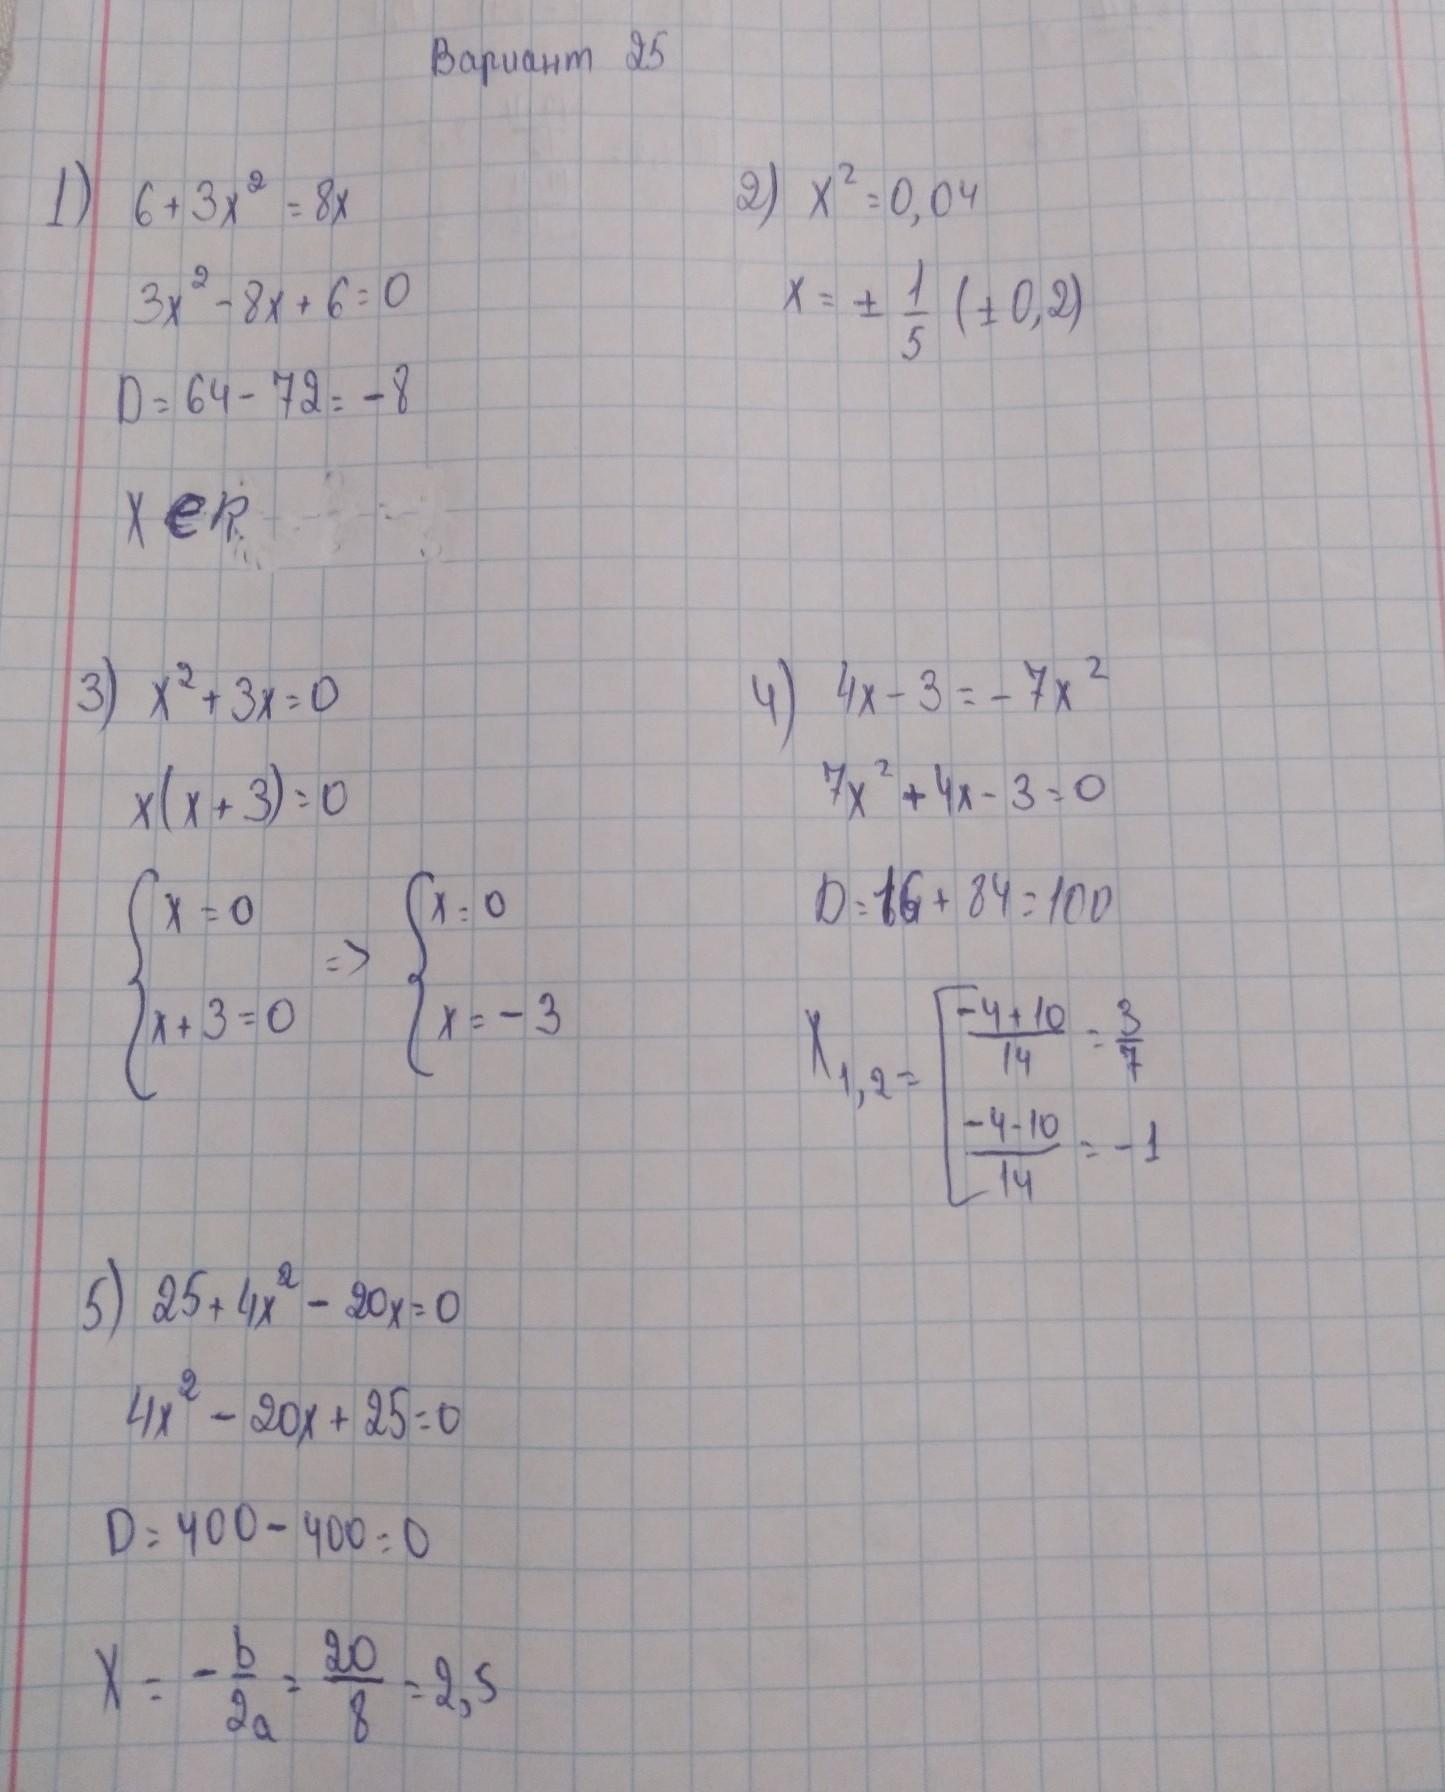 Вариант 25
1) 6+3x²=8x
3x²-8x+6=0
D=64-72=-8
X∈R
2) x²=0,04
x=± 1/5 (±0,2)
3) x²+3x=0
x(x+3)=0
{x=0 => {x=0
x+3=0 x=-3
4) 4x-3=-7x²
7x²+4x-3=0
D=16+84=100
X1,2= [ (-4+10)/14 = 3/7
(-4-10)/14 = -1
5) 25+4x²-20x=0
4x²-20x+25=0
D=400-400=0
X = -b/2a = 20/8 = 2,5